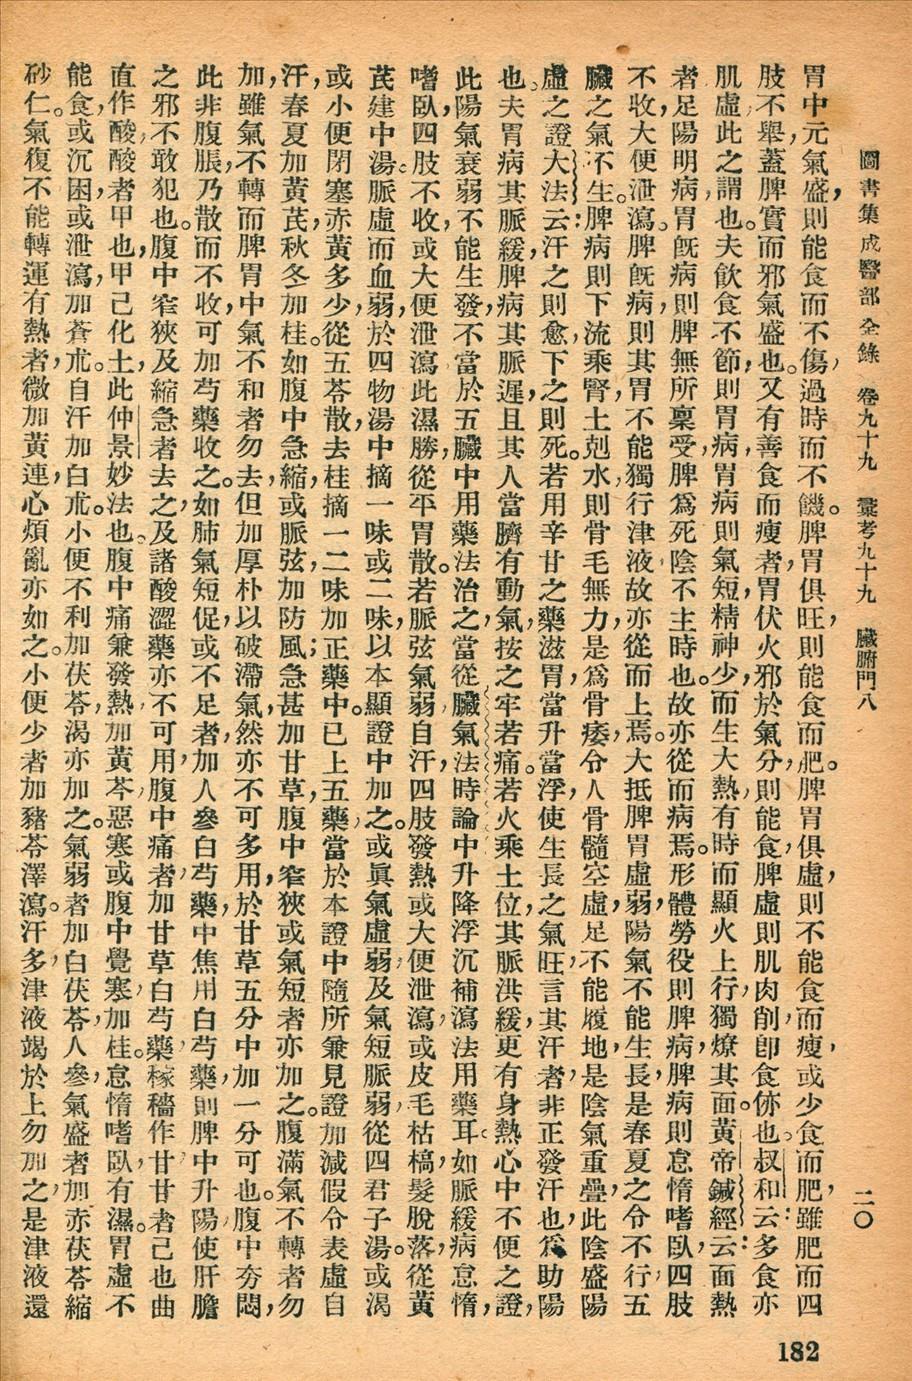 圖書集成醫部全錄 卷九十九 彙考九十九 臟腑門八 二〇
胃中元氣盛，則能食而不傷，過時而不饑。脾胃俱旺，則能食而肥。脾胃俱虛，則不能食而瘦，或少食而肥，雖肥而四
肢不舉，蓋脾實而邪氣盛也。又有善食而瘦者，胃伏火邪於氣分，則能食，脾虛則肌肉削，卽食㑊也。叔和云：多食亦
肌虛，此之謂也。夫飲食不節，則胃病，胃病則氣短，精神少，而生大熱，有時而顯火上行，獨燎其面。黃帝鍼經云：面熱
者，足陽明病，胃旣病，則脾無所稟受，脾爲死陰，不主時也，故亦從而病焉。形體勞役則脾病，脾病則怠惰嗜臥，四肢
不收，大便泄瀉。脾旣病，則其胃不能獨行津液，故亦從而上焉。大抵脾胃虛弱，陽氣不能生長，是春夏之令不行，五
臟之氣不生。脾病則下流乘腎，土剋水，則骨乇無力，是爲骨痿，令人骨髓空虛，足不能履地，是陰氣重疊，此陰盛陽
虛之證。大法云：汗之則愈，下之則死。若用辛甘之藥滋胃，當升當浮，使生長之氣旺，言其汗者，非正發汗也，爲助陽
也。夫胃病其脈緩，脾病其脈遲，且其人當臍有動氣，按之牢若痛。若火乘土位，其脈洪緩，更有身熱心中不便之證，
此陽氣衰弱，不能生發，不當於五臟中用藥法治之，當從臟氣法時論中升降浮沉補瀉法用藥耳。如脈緩病怠惰，
嗜臥，四肢不收，或大便泄瀉，此濕勝，從平胃散。若脈弦氣弱自汗，四肢發熱，或大便泄瀉，或皮毛枯槁，髮脫落，從黃
芪建中湯。脈虛而血弱，於四物湯中摘一味或二味，以本顯證中加之。或眞氣虛弱，及氣短脈弱，從四君子湯。或渴
或小便閉塞，赤黃多少，從五苓散去桂，摘一二味加正藥中。已上五藥，當於本證中隨所兼見證加減。假令表虛自
汗，春夏加黃芪，秋冬加桂。如腹中急縮，或脈弦，加防風；急甚加甘草，腹中窄狹，或氣短者亦加之。腹滿氣不轉者勿
加，雖氣不轉而脾胃中氣不和者勿去，但加厚朴以破滯氣，然亦不可多用，於甘草五分中加一分可也。腹中夯悶，
此非腹脹，乃散而不收，可加芍藥收之。如肺氣短促，或不足者，加人參白芍藥，中焦用白芍藥，則脾中升陽，使肝膽
之邪不敢犯也。腹中窄狹及縮急者去之，及諸酸澀藥亦不可用，腹中痛者，加甘草白芍藥，稼穡作甘，甘者己也，曲
直作酸，酸者甲也，甲己化土，此仲景妙法也。腹中痛兼發熱，加黃芩，惡寒或腹中覺寒，加桂。怠惰嗜臥，有濕。胃虛不
能食，或沉困，或泄瀉，加蒼朮。自汗加白朮。小便不利加茯苓，渴亦加之。氣弱者加白茯苓，人參，氣盛者加赤茯苓縮
砂仁。氣復不能轉運，有熱者，微加黃連，心煩亂亦如之。小便少者加豬苓澤瀉。汗多，津液竭於上，勿加之，是津液還
182